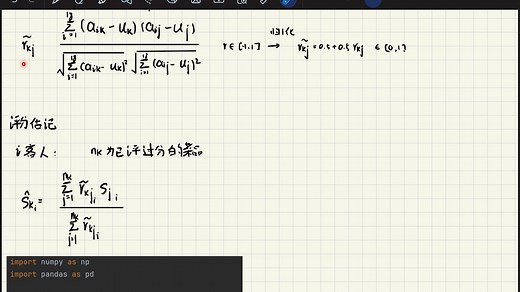 r̃kj = Σ_{i=1} (aik - uk)(aij - uj) / √Σ_{i=1}(aik - uk)² √Σ_{i=1}(aij - uj)²
r ∈ [-1,1] → r̃kj = 0.5 + 0.5 rkj ∈ (0,1)
评估
i客人: nk为已评过分的菜品
Ŝki = Σ_{j=1}^{nk} r̃kji Sji / Σ_{j=1}^{nk} r̃kji
import numpy as np
import pandas as pd